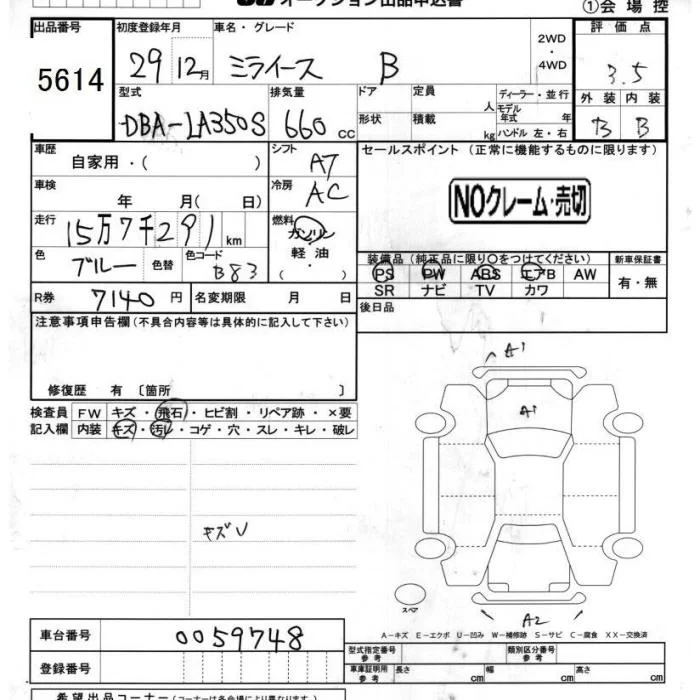 オークション出品申込書
①会場控
出品番号 5614
初度登録年月 29 12月
車名・グレード ミライース B
2WD・4WD
評価点 3.5
外装 B 内装 B
型式 DBA-LA350S
排気量 660 cc
ドア 形状
定員 人
積載 kg
ディーラー・並行
モデル年式 年
ハンドル 左・右
車歴 自家用・( )
シフト A7
セールスポイント (正常に機能するものに限ります)
NOクレーム・売切
車検 年 月( 日)
冷房 AC
走行 15万7千291 km
燃料 ガソリン・軽油・( )
色 ブルー 色替 色コード B83
装備品 (純正品に限り○をつけてください)
PS PW ABS エアB AW
SR ナビ TV カワ
新車保証書 有・無
R券 7140 円
名変期限 月 日
後日品
注意事項申告欄(不具合内容等は具体的に記入して下さい)
修復歴 有 〔箇所 〕
検査員記入欄
FW キズ・飛石・ヒビ割・リペア跡・×要
内装 キズ・汚レ・コゲ・穴・スレ・キレ・破レ
キズU
A1
A1
スペア
A2
A−キズ E−エクボ U−凹み W−補修跡 S−サビ C−腐食 XX−交換済
車台番号 0059748
登録番号
型式指定番号 参考
類別区分番号 参考
車庫証明用 参考 長さ cm 幅 cm 高さ cm
希望出品コーナー(コーナーは各会場により異なります。)